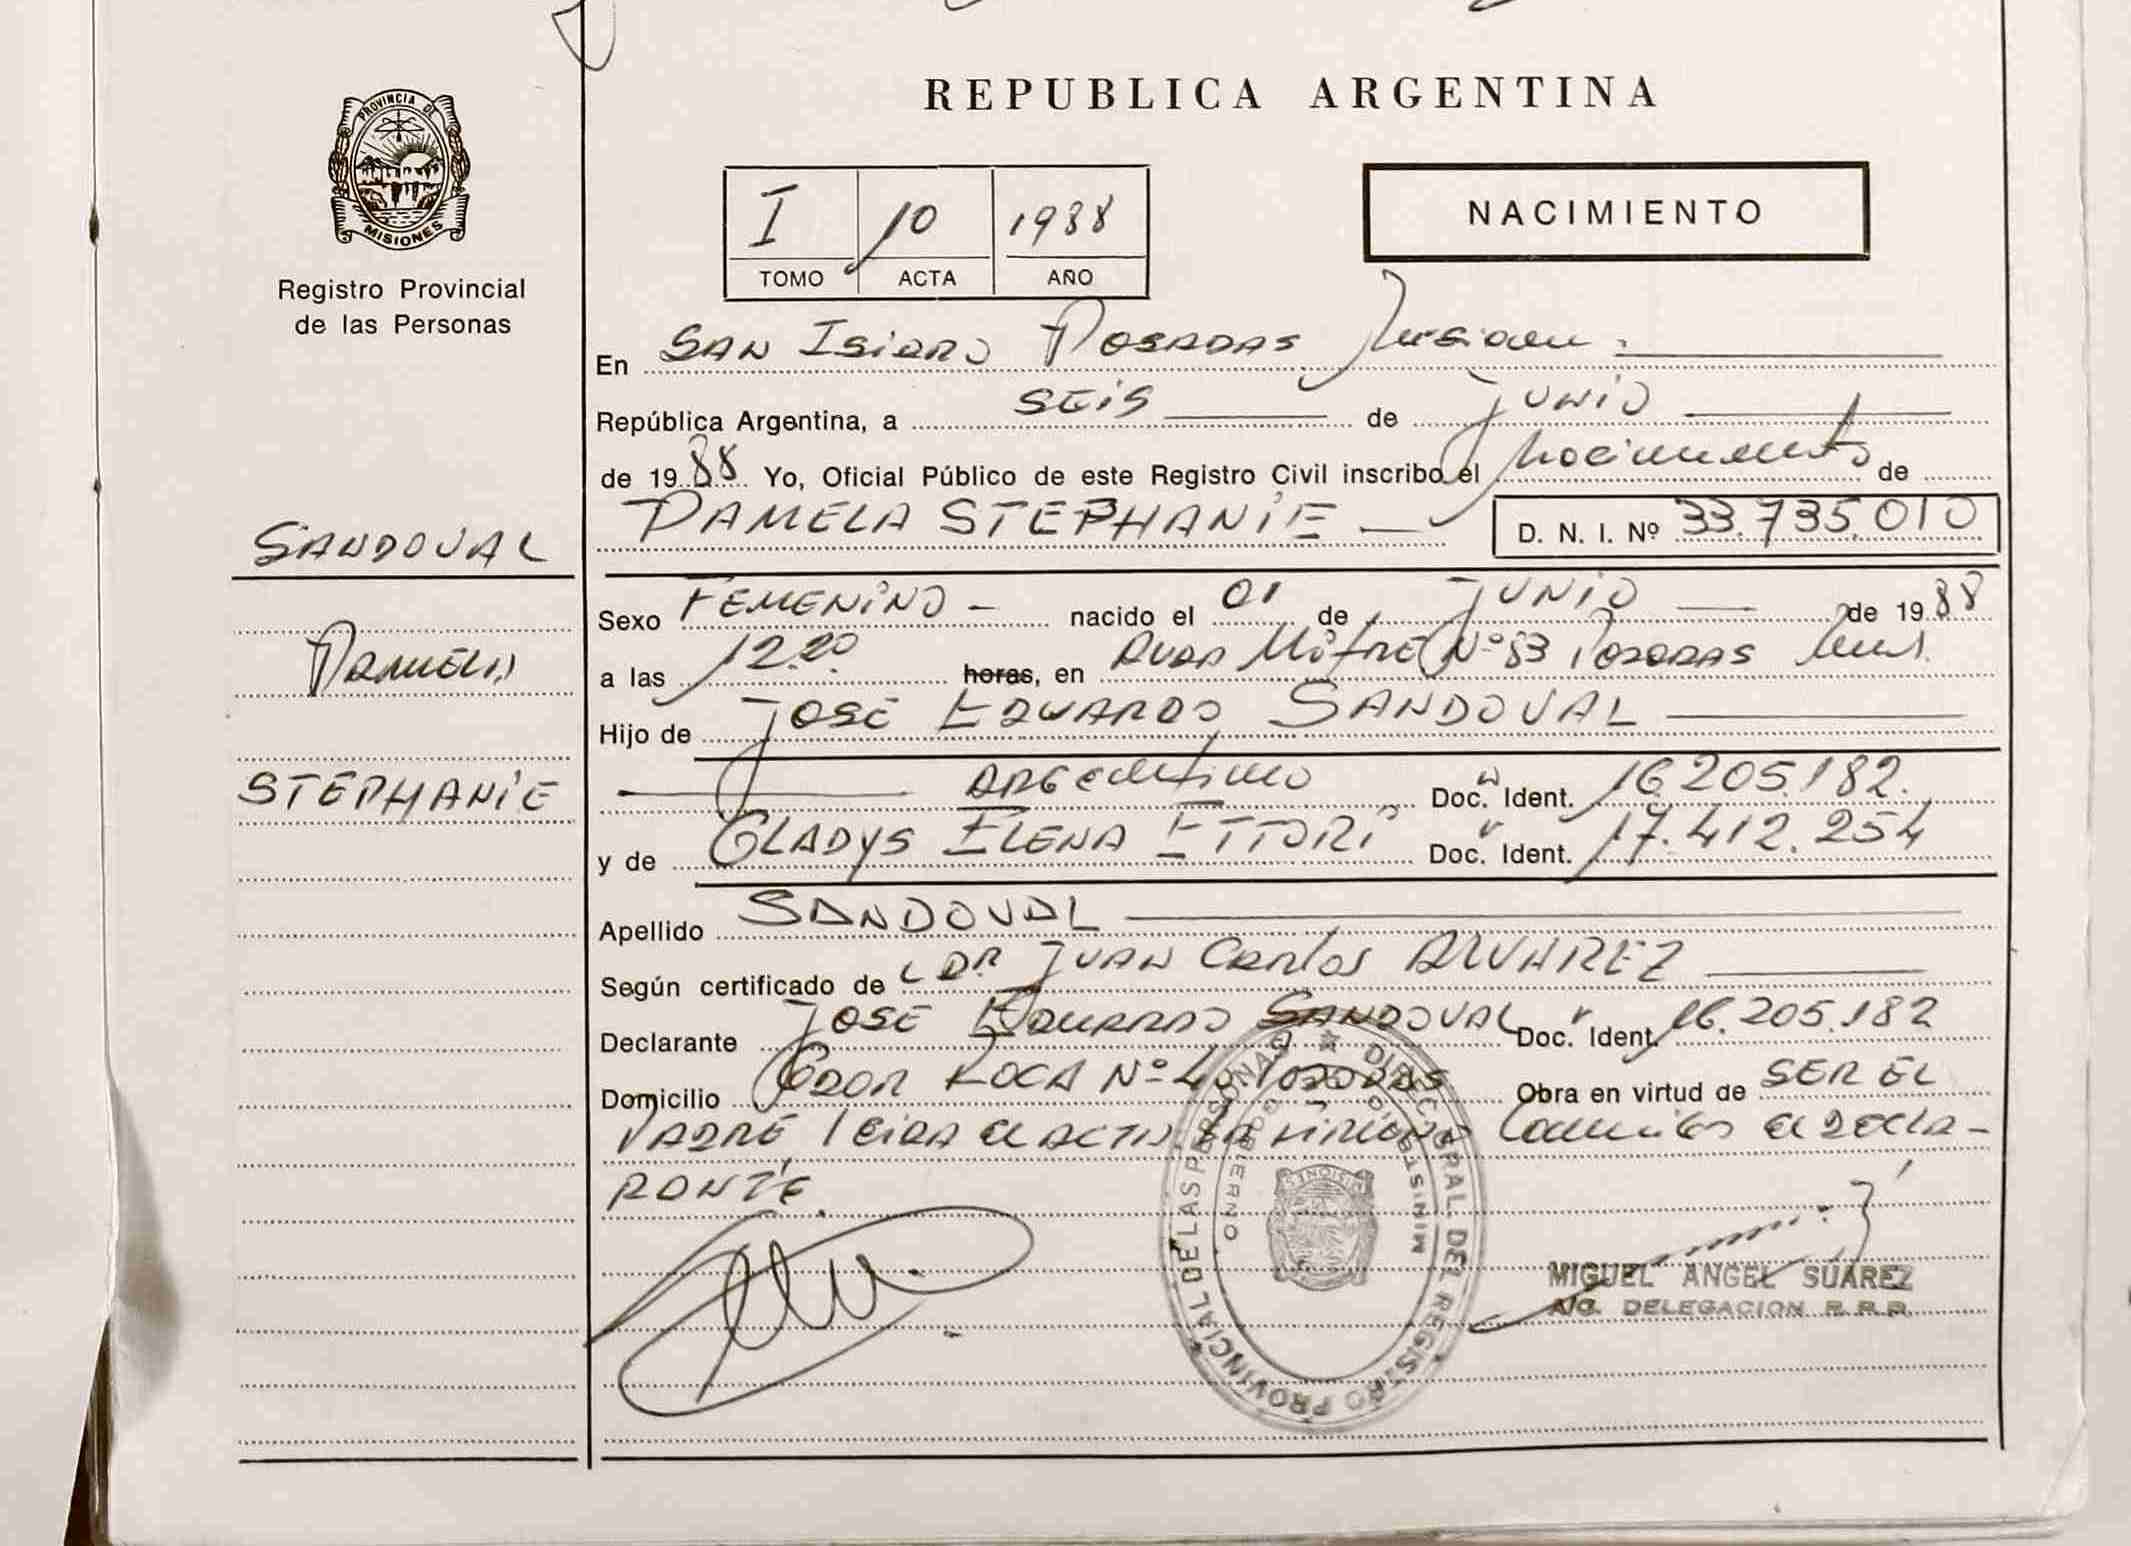 REPUBLICA ARGENTINA
PROVINCIA DE
MISIONES
Registro Provincial
de las Personas
I 10 1988
TOMO ACTA AÑO
NACIMIENTO
En SAN ISIDRO POSADAS Misiones.
República Argentina, a SEIS de JUNIO
de 1988 Yo, Oficial Público de este Registro Civil inscribo el Nacimiento de
PAMELA STEPHANIE D. N. I. Nº 33.735.010
SANDOVAL
PAMELA
STEPHANIE
Sexo FEMENINO - nacido el 01 de JUNIO de 1988
a las 12.20 horas, en AVDA MITRE Nº 83 POSADAS
Hijo de JOSE EDUARDO SANDOVAL
ARGENTINO Doc. Ident. 16.205.182.
y de GLADYS ELENA ETTORI Doc. Ident. 17.412.254
Apellido SANDOVAL
Según certificado de DR JUAN Carlos ALVAREZ
Declarante JOSE EDUARDO SANDOVAL Doc. Ident. 16.205.182
Domicilio ROCA Nº POSADAS Obra en virtud de SER EL
PADRE LEIDA el ACTA LA FIRMAN el DECLA-
RANTE.
DIRECCION GRAL DEL REGISTRO PROVINCIAL DE LAS PERSONAS
MINISTERIO DE GOBIERNO
MISIONES
MIGUEL ANGEL SUAREZ
A/C. DELEGACION R.P.P.